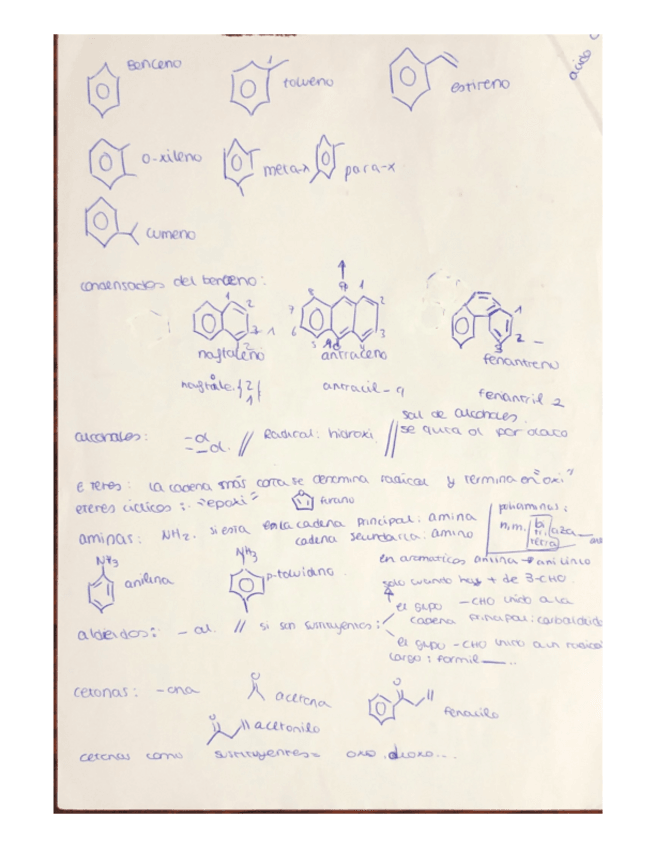 Benceno
1
tolueno
estireno
acido
o-xileno
meta-x
para-x
cumeno
condensados del benceno:
1
2
3
1
2
naftaleno
8
9
1
7
2
6
3
5
10
4
antraceno
1
2
3
fenantreno
naftale.
2
1
antracil-9
fenantril 2
sal de alcoholes.
alcoholes:
-ol
-ol.
// Radical: hidroxi.
// se quita ol por olato
eteres: la cadena más corta se denomina radical y termina en "oxi"
eteres cíclicos: "epoxi"
furano
poliaminas:
aminas: NH2. si esta en la cadena principal: amina
cadena secundaria: amino
n.m.
di
tri
tetra
aza
NH3
anilina
NH3
p-toluidino
en aromaticos amina → anilino
solo cuando hay + de 3-CHO.
aldeidos: -al. // si son sustituyentes:
el grupo -CHO unido a la
cadena principal: carbaldehido
el grupo -CHO unido a un radical
largo: formil
cetonas: -ona
acetona
fenacilo
acetonilo
cetonas como sustituyentes= oxo.dioxo...